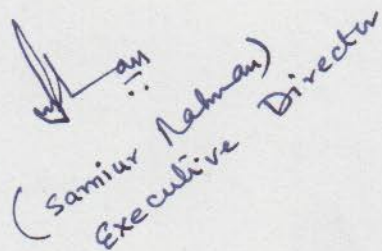 (Samiur Rahman)
Executive Director